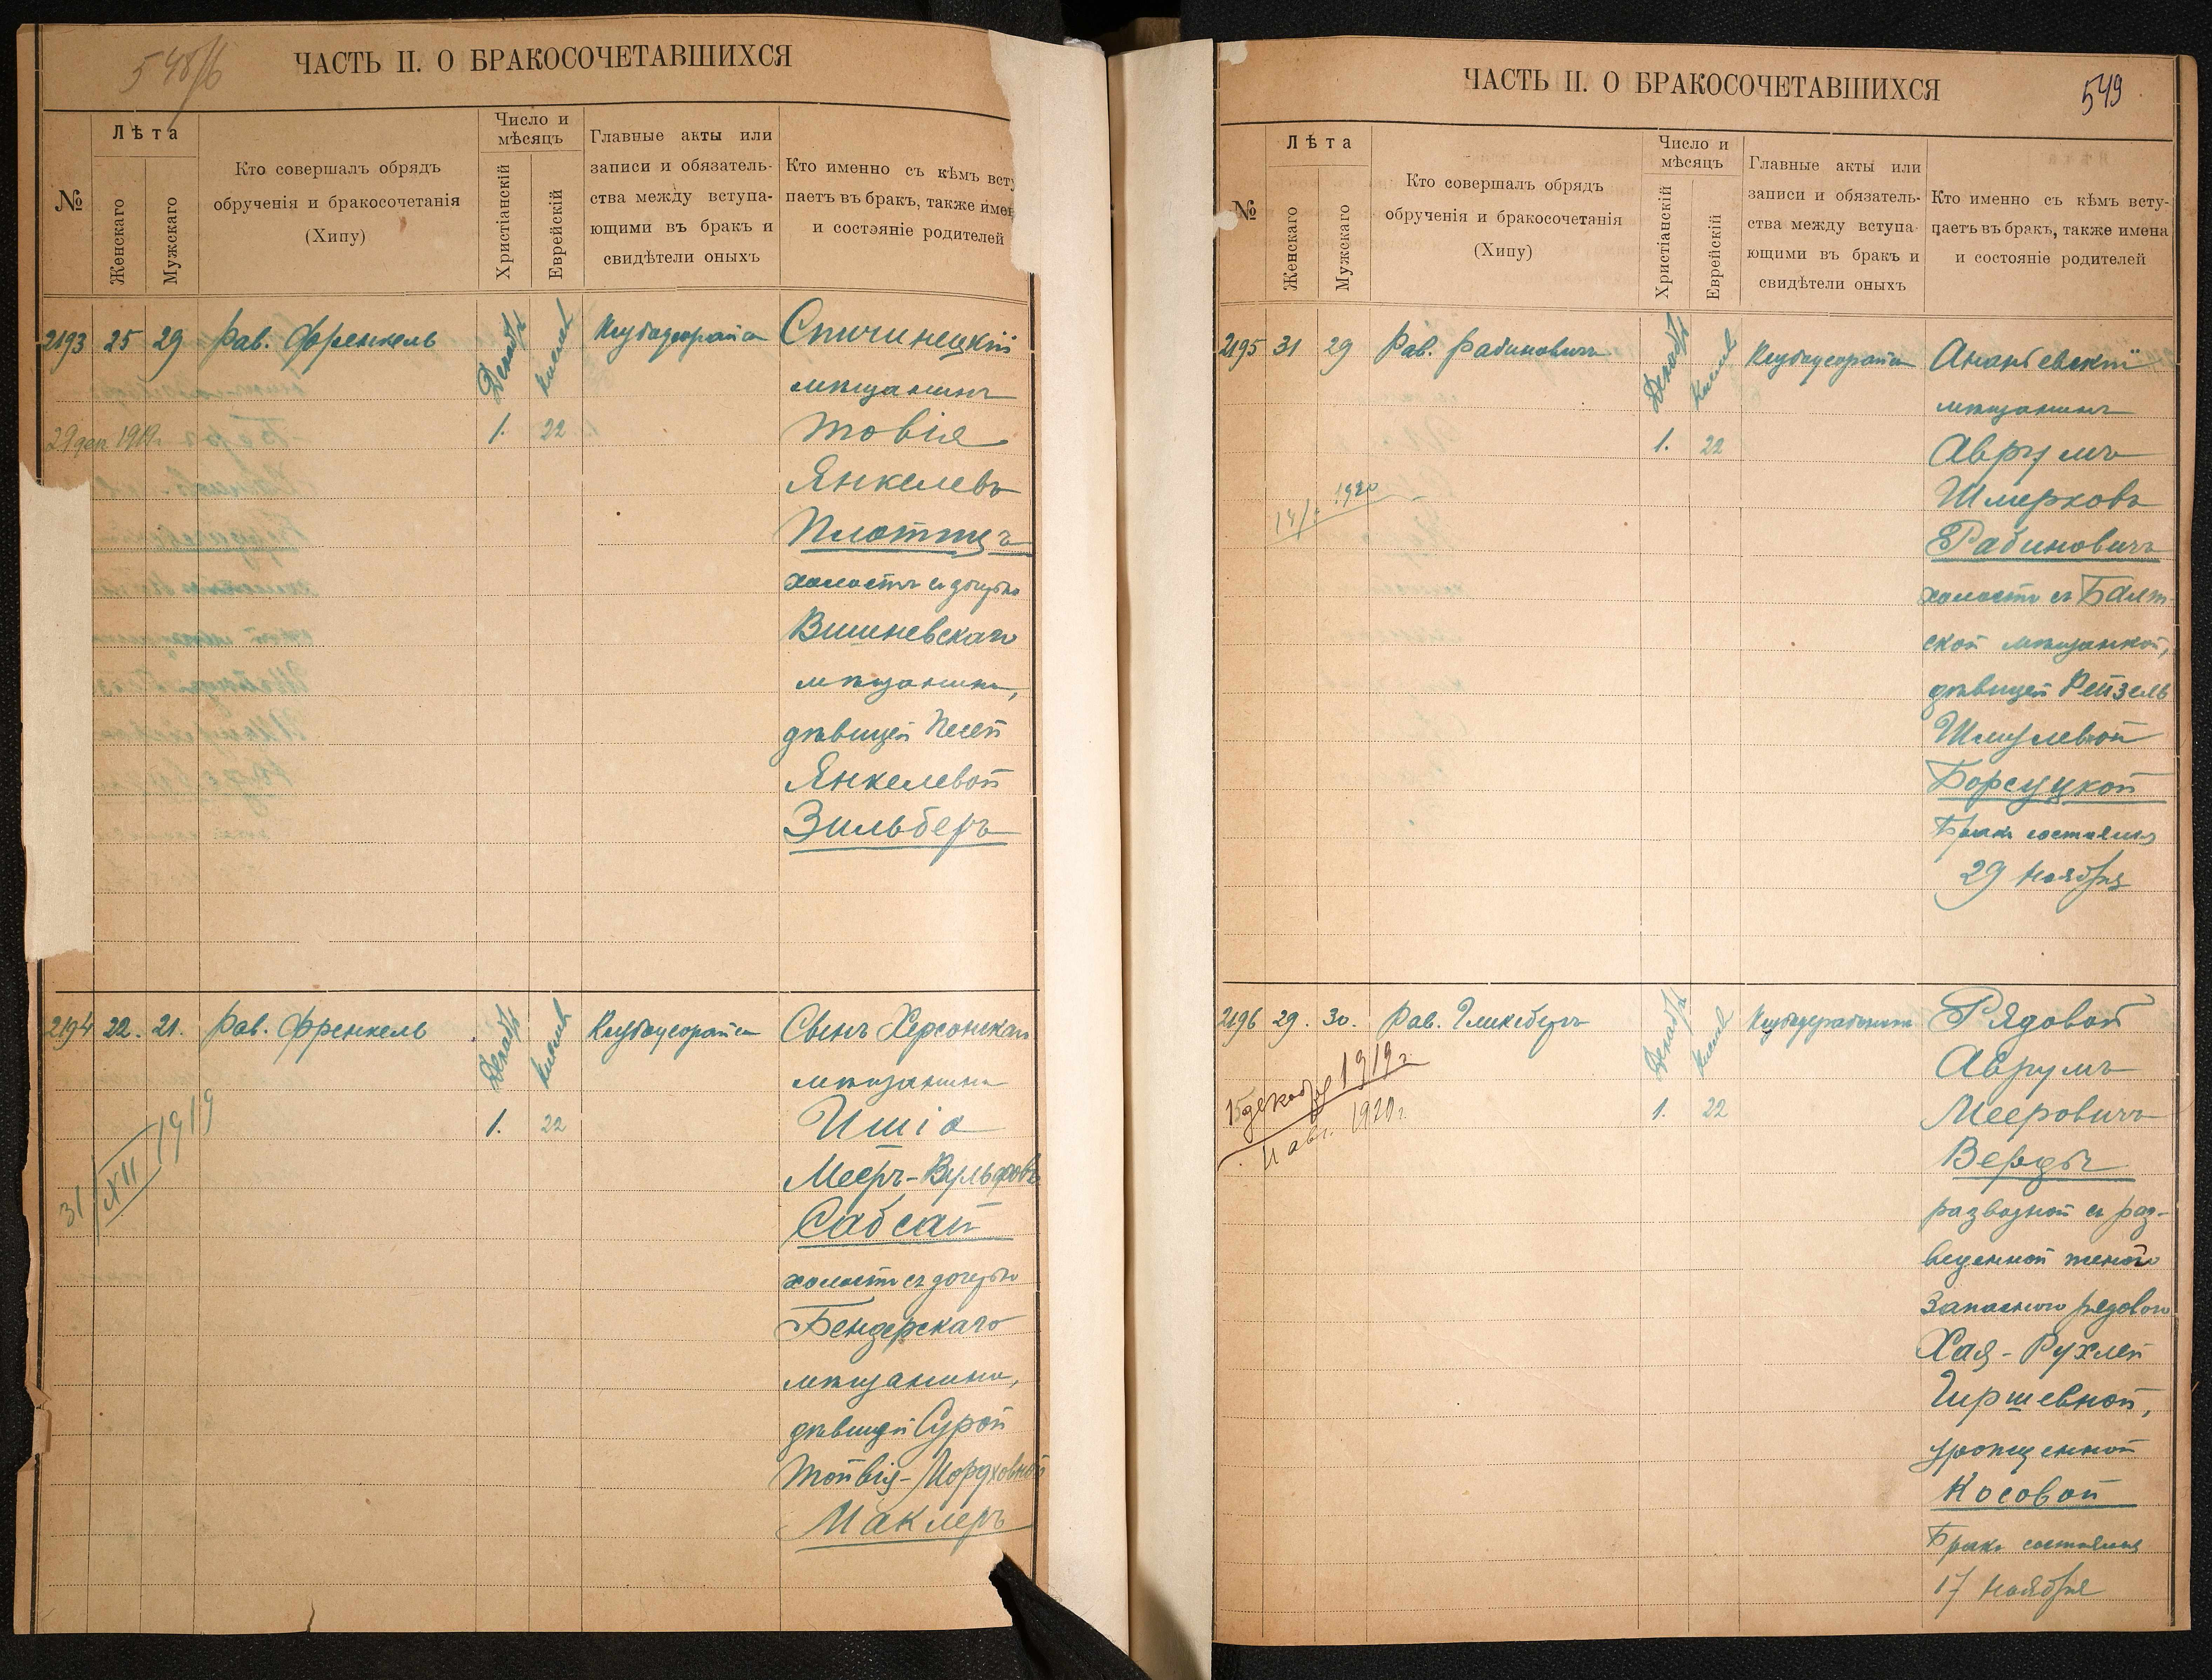 548/б
ЧАСТЬ II. О БРАКОСОЧЕТАВШИХСЯ
№
Лѣта
Женскаго
Мужскаго
Кто совершалъ обрядъ
обрученія и бракосочетанія
(Хипу)
Число и
мѣсяцъ
Христіанскій
Еврейскій
Главные акты или
записи и обязатель-
ства между вступа-
ющими въ бракъ и
свидѣтели оныхъ
Кто именно съ кѣмъ всту
паетъ въ бракъ, также имен
и состояніе родителей
2193 25 29 Рав. Френкель
Декабр
Кислев
1. 22
Спичинецкій
мѣщанинъ
Товія
Янкелевъ
Плоттцъ
холостъ съ дочерью
Вишневскаго
мѣщанина,
дѣвицей Песей
Янкелевой
Зильберъ
29 дек. 1919г.
2194 22. 21. Рав. Френкель
Декабр
Кислев
1. 22
Сынъ Херсонскаго
мѣщанина
Ишіа
Мееръ-Вульфовъ
Сабсай
холостъ съ дочерью
Бендерскаго
мѣщанина,
дѣвицей Сурой
Тойвія-Мордховной
Маклеръ
31/XII 1919
549
ЧАСТЬ II. О БРАКОСОЧЕТАВШИХСЯ
№
Лѣта
Женскаго
Мужскаго
Кто совершалъ обрядъ
обрученія и бракосочетанія
(Хипу)
Число и
мѣсяцъ
Христіанскій
Еврейскій
Главные акты или
записи и обязатель-
ства между вступа-
ющими въ бракъ и
свидѣтели оныхъ
Кто именно съ кѣмъ всту-
паетъ въ бракъ, также имена
и состояніе родителей
2195 31 29 Рав. Рабиновичъ
Декабр
Кислев
1. 22
Ананьевскій
мѣщанинъ
Аврумъ
Шмерковъ
Рабиновичъ
холостъ съ Балт-
ской мѣщанкой,
дѣвицей Рейзель
Шмулевной
Борсуцкой
Бракъ состоялся
29 ноября
1920
2196 29. 30. Рав. Гликсбергъ
Декабр
Кислев
1. 22
Рядовой
Аврумъ
Мееровичъ
Верды
разводной съ раз-
веденной женою
Запаснаго рядового
Хая-Рухлей
Гиршевной,
урожденной
Косовой
Бракъ состоялся
17 ноября
15 декабря 1919 г.
11 авг. 1920 г.